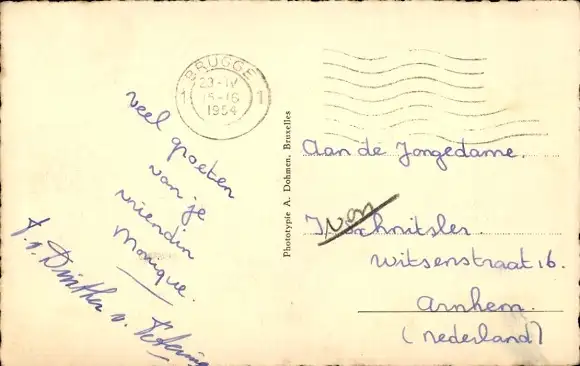 BRUGGE
23-IV
15-16
1954
1 1
veel groeten
van je
vriendin
Monique.
Phototypie A. Dohmen, Bruxelles
Aan de Jongedame.
von
Schnitsler
Witsenstraat 16.
Arnhem.
(nederland)